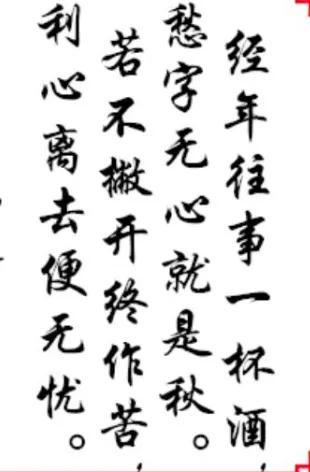 经年往事一杯酒,
愁字无心就是秋。
若不撇开终作苦,
利心离去便无忧。